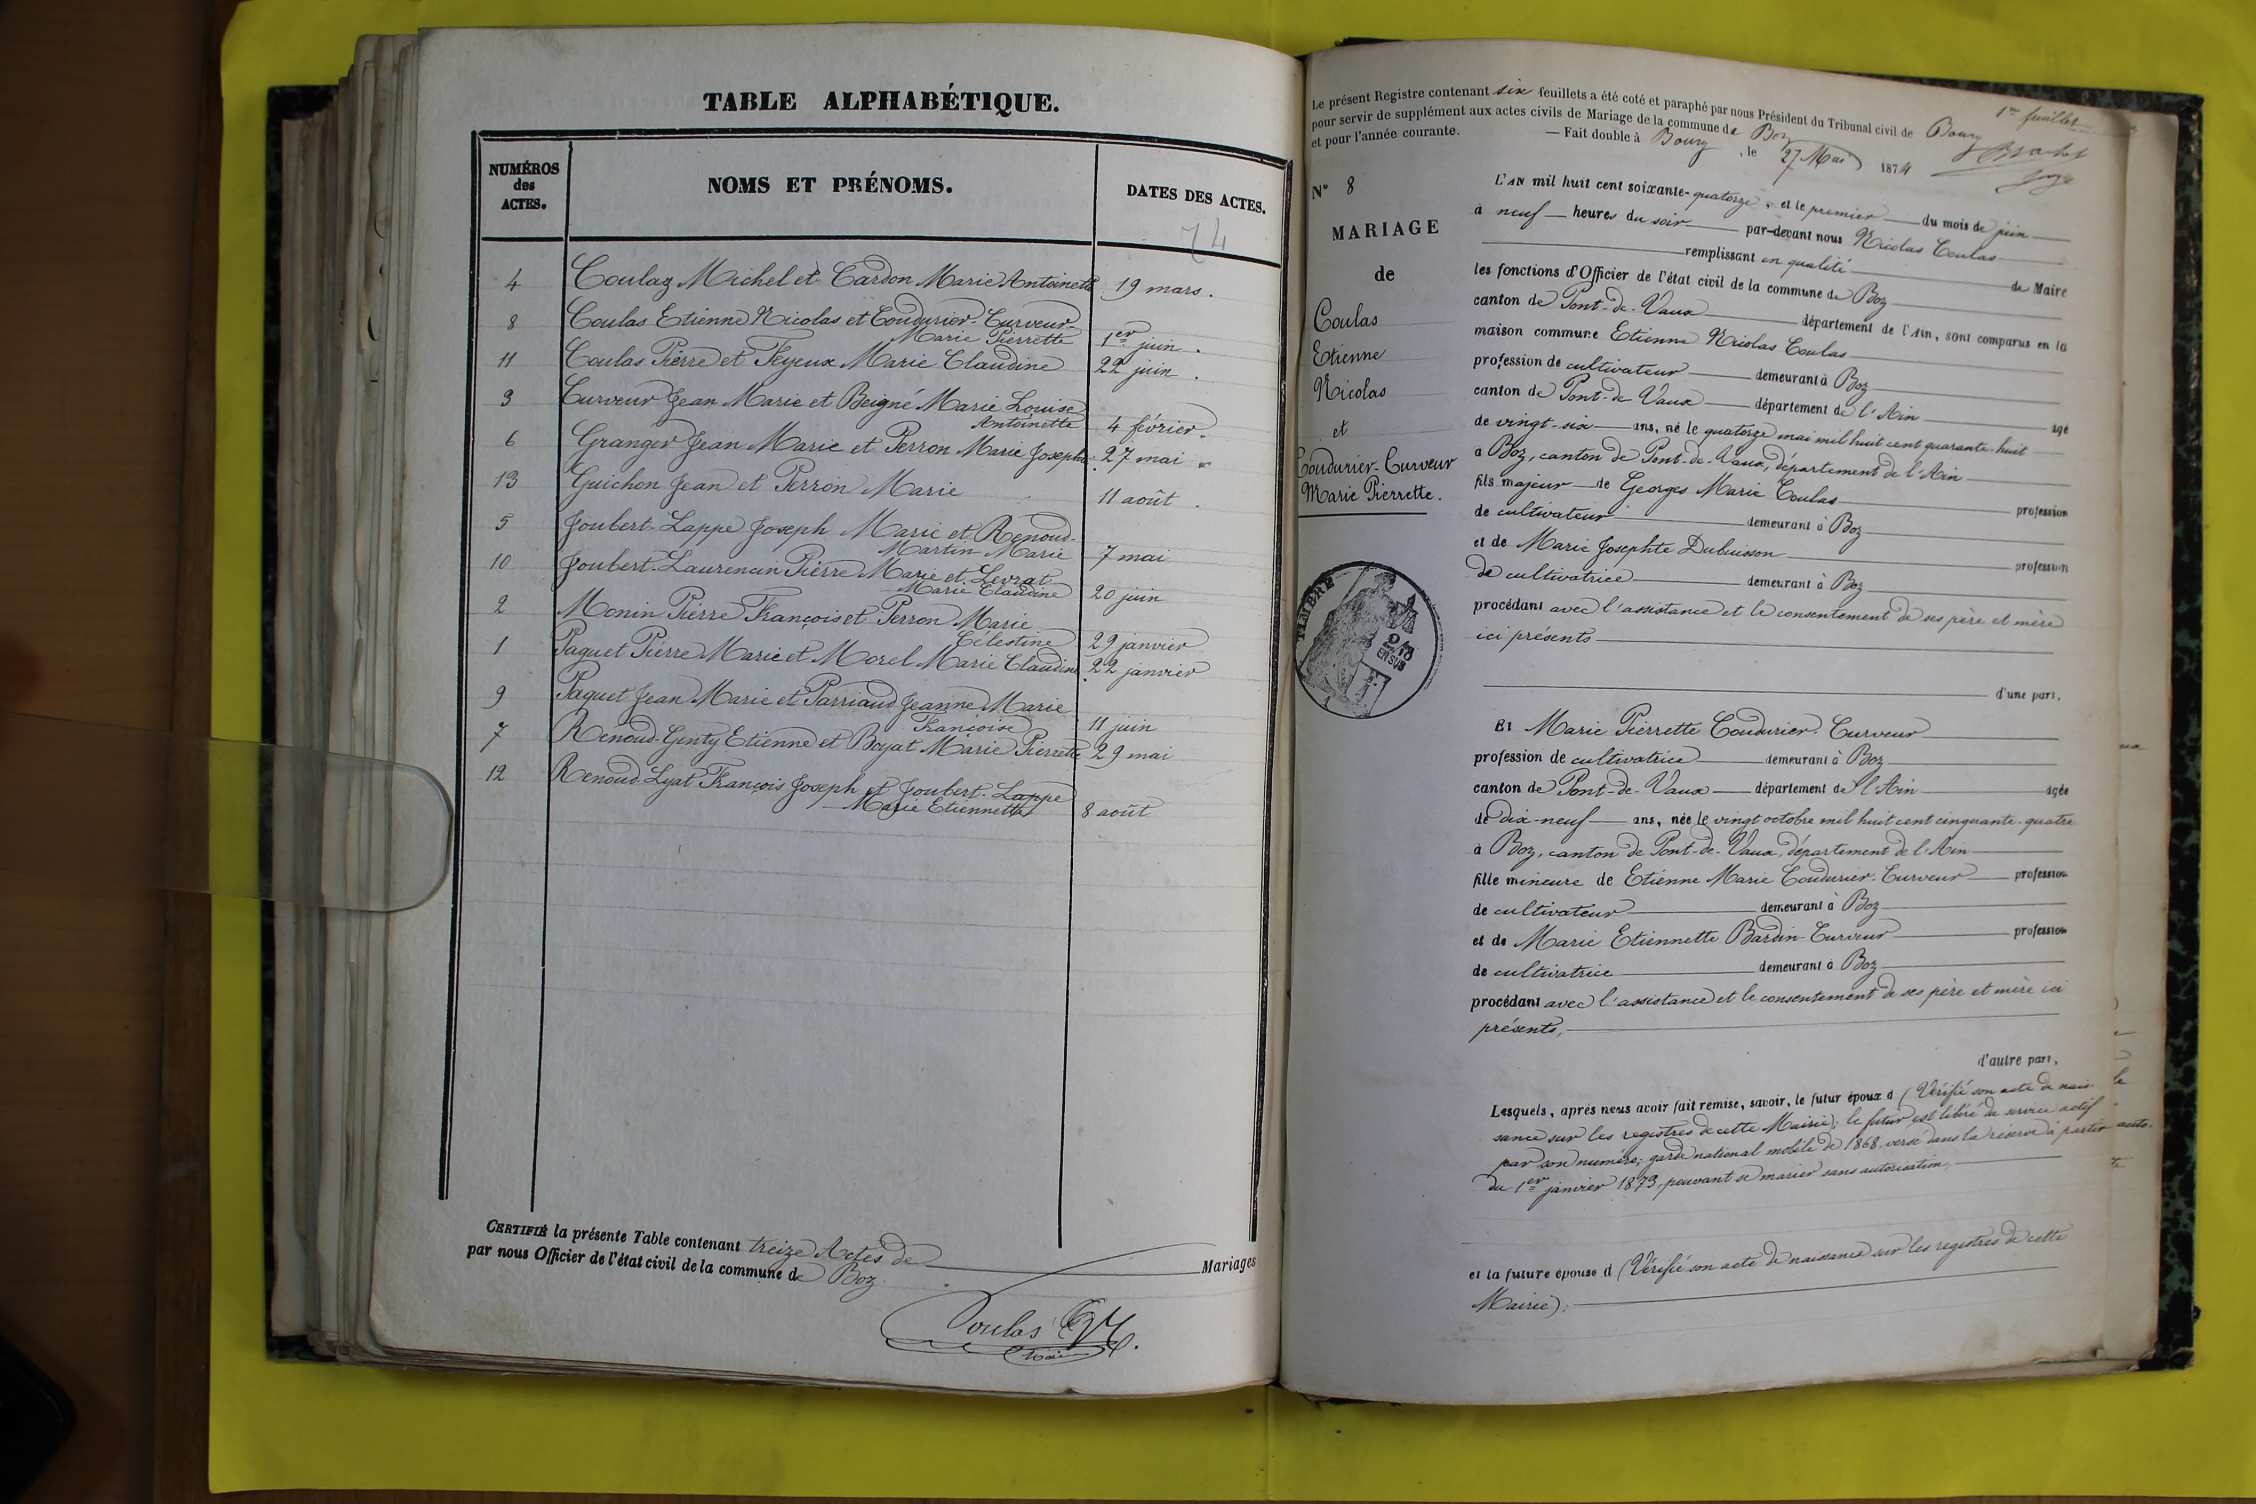 TABLE ALPHABÉTIQUE.
NUMÉROS des ACTES.
NOMS ET PRÉNOMS.
DATES DES ACTES.
74
4 Coulas Michel et Cardon Marie Antoinette 19 mars.
8 Coulas Etienne Nicolas et Coudurier-Curveur-
Marie Pierrette 1er juin.
11 Coulas Pierre et Feyeux Marie Claudine 22 juin.
3 Curveur Jean Marie et Beigné Marie Louise
Antoinette 4 février.
6 Granger Jean Marie et Perron Marie Josephte 27 mai
13 Guichon Jean et Perron Marie 11 août.
5 Joubert-Lappe Joseph Marie et Renoud-
Martin Marie 7 mai
10 Joubert-Laurencin Pierre Marie et Levrat
Marie Claudine 20 juin
2 Monin Pierre François et Perron Marie
Célestine 29 janvier
1 Paquet Pierre Marie et Morel Marie Claudine 22 janvier
9 Paquet Jean Marie et Parriaud Jeanne Marie
Françoise 11 juin
7 Renoud-Genty Etienne et Boyat Marie Pierrette 29 mai
12 Renoud-Lyat François Joseph et Joubert-Lappe
Marie Etiennette 8 août
CERTIFIÉ la présente Table contenant treize Actes de Mariages
par nous Officier de l'état civil de la commune de Boz.
Coulas
Maire
1er feuillet
Le présent Registre contenant six feuillets a été coté et paraphé par nous Président du Tribunal civil de Bourg
pour servir de supplément aux actes civils de Mariage de la commune de Boz
et pour l'année courante. — Fait double à Bourg, le 27 Mai 1874
N° 8
MARIAGE
de
Coulas
Etienne
Nicolas
et
Coudurier-Curveur
Marie Pierrette.
TIMBRE
2/10 EN SUS
L'AN mil huit cent soixante-quatorze, et le premier du mois de juin
à neuf heures du soir par-devant nous Nicolas Coulas
remplissant en qualité de Maire
les fonctions d'Officier de l'état civil de la commune de Boz
canton de Pont-de-Vaux département de l'Ain, sont comparus en la
maison commune Etienne Nicolas Coulas
profession de cultivateur demeurant à Boz
canton de Pont-de-Vaux département de l'Ain agé
de vingt-six ans, né le quatorze mai mil huit cent quarante-huit
à Boz, canton de Pont-de-Vaux, département de l'Ain
fils majeur de Georges Marie Coulas profession
de cultivateur demeurant à Boz
et de Marie Josephte Dubuisson profession
de cultivatrice demeurant à Boz
procédant avec l'assistance et le consentement de ses père et mère
ici présents
d'une part.
Et Marie Pierrette Coudurier-Curveur
profession de cultivatrice demeurant à Boz
canton de Pont-de-Vaux département de l'Ain agée
de dix-neuf ans, née le vingt octobre mil huit cent cinquante-quatre
à Boz, canton de Pont-de-Vaux, département de l'Ain
fille mineure de Etienne Marie Coudurier-Curveur profession
de cultivateur demeurant à Boz
et de Marie Etiennette Bardin-Curveur profession
de cultivatrice demeurant à Boz
procédant avec l'assistance et le consentement de ses père et mère ici
présents,
d'autre part,
Lesquels, après nous avoir fait remise, savoir, le futur époux d (Vérifié son acte de nais-
sance sur les registres de cette Mairie); le futur est libéré du service actif
par son numéro; garde national mobile de 1868, versé dans la réserve à partir
du 1er janvier 1873, pouvant se marier sans autorisation,
et la future épouse d (Vérifié son acte de naissance sur les registres de cette
Mairie);